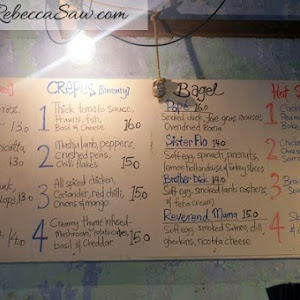 RebeccaSaw.com
CRÊPES (Savoury)
1 Thick tomato sauce,
Prawns, fish,
Basil & Cheese 16.0
2 Mashy lamb, peppers,
crushed peas,
Chilli flakes 15.0
3 All spiced chicken,
Coriander, red chilli,
Onions & mango 15.0
4 Creamy thyme infused
Mushroom, potato cubes,
basil & cheddar 15.0
Bagel
Papa 16.0
Smoked duck, foie gras mousse,
Ovendried Roma
Sister Flo 14.0
Soft egg, spinach, peanuts,
lemon hollandaise & turkey slices
Brother Dick 14.0
Soft egg, smoked lamb rashers
& feta cream
Reverend Mama 15.0
Soft egg, smoked Salmon, dill,
gherkins, ricotta cheese
13.0
14.0
Hot S
1
2
3
4